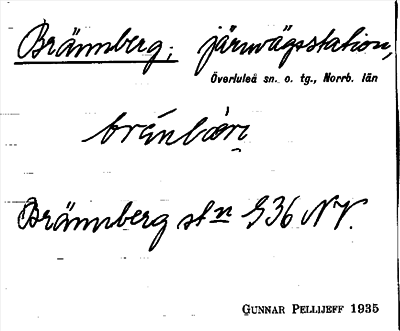 Brännberg; järnvägsstation,
Överluleå sn. o. tg., Norrb. län
Brännberg stn G36 NV.
GUNNAR PELLIJEFF 1935